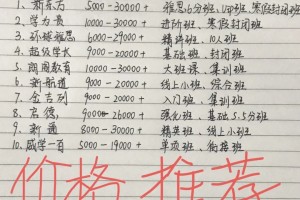 1、新东方 5000-30000+ 雅思6分班、VIP班、寒假封闭班
2、学为贵 10000-30000+ 进阶班、寒假封闭班
3、环球雅思 6000-29000+ 精讲班、10人班
4、超级学长 9000-20000+ 基础班、封闭班
5、朗阁教育 10000-30000+ 大班课、集训班
6、新航道 9000-20000+ 线上小班、综合班
7、金吉列 9000-20000+ 入门班、集训班
8、启德, 9000-26000+ 强化班、基础5.5分班
9、新通 8000-30000+ 精英班、线上小班
10、咸学一百 5000-19000+ 单项班、衔接班
价格推荐